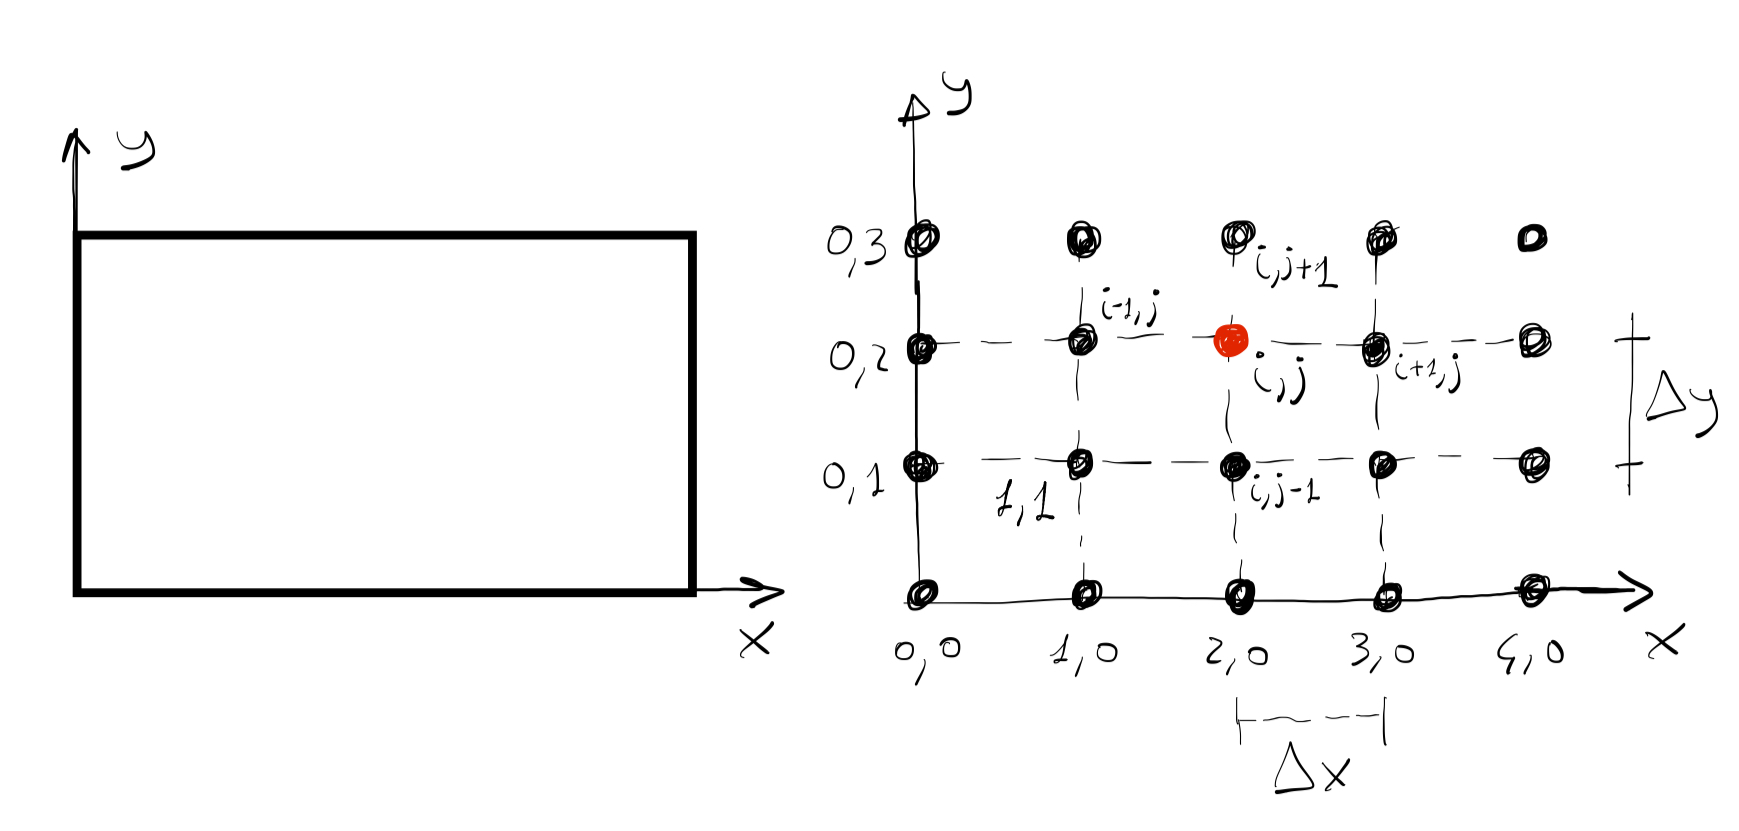 y
x
y
0,3
i,j+1
i-1,j
0,2
i,j
i+1,j
Δy
0,1
1,1
i,j-1
0,0 1,0 2,0 3,0 4,0 x
Δx